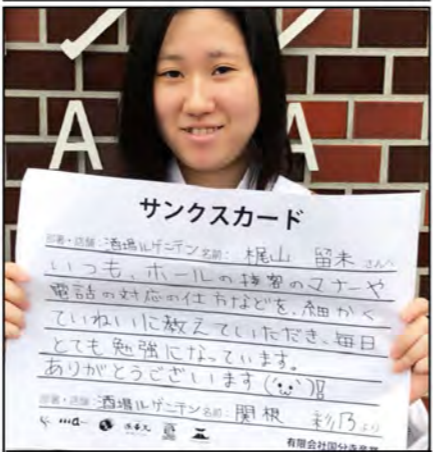 サンクスカード
部署・店舗：酒場ルゲニテン 名前：梶山 留未 さんへ
いつも、ホールの接客のマナーや
電話の対応の仕方などを、細かく
ていねいに教えていただき、毎日
とても勉強になっています。
ありがとうございます('ω')!!
部署・店舗：酒場ルゲニテン 名前：関根 彩乃 より
有限会社国分寺産業